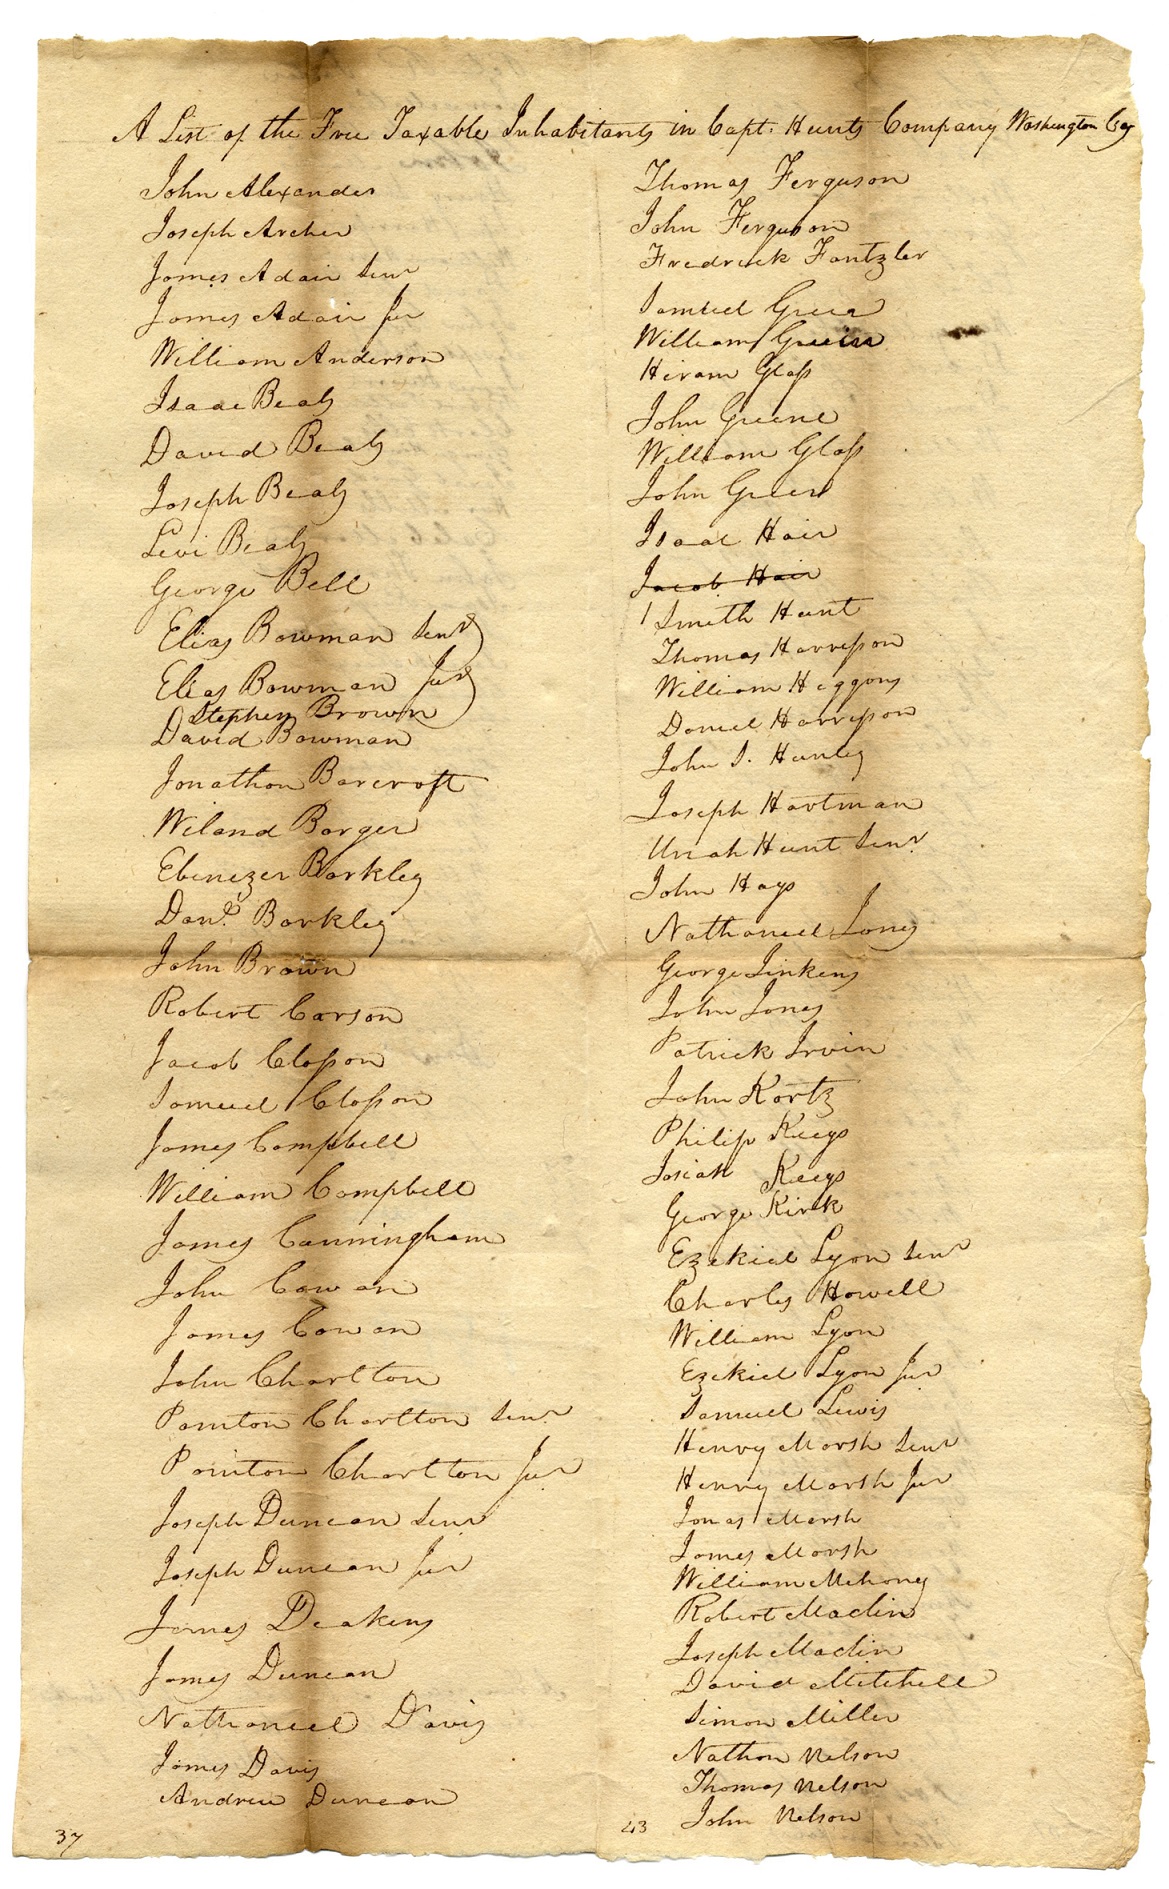 A List of the Free Taxable Inhabitants in Capt. Hunts Company Washington Coy
John Alexander
Joseph Archer
James Adair Senr
James Adair Jur
William Anderson
Isaac Beals
David Beals
Joseph Beals
Levi Beals
George Bell
Elias Bowman Senr
Elias Bowman Jur
Stephen Brown
David Bowman
Jonathan Barcroft
Wiland Barger
Ebenezer Barkley
Danl. Barkley
John Brown
Robert Carson
Jacob Classon
Samuel Classon
James Campbell
William Campbell
James Cunningham
John Cowan
James Cowan
John Charlton
Pointon Charlton Senr
Pointon Charlton Jur
Joseph Duncan Senr
Joseph Duncan Jur
James Deakens
James Duncan
Nathaneel Davis
James Davis
Andrew Duncan
37
Thomas Ferguson
John Ferguson
Fredreck Fantzler
Samuel Greer
William Greein
Hiram Glass
John Greene
William Glass
John Green
Isaac Hair
Jacob Hair
1 Smith Hunt
Thomas Harresson
William Heggons
Daniel Harresson
John S. Hunley
Joseph Hartman
Uriah Hunt Senr
John Hays
Nathaneel Jones
George Jinkens
John Jones
Patrick Irvin
John Kortz
Philip Keeys
Josiah Keeys
George Kirk
Ezekiel Lyon Senr
Charles Howell
William Lyon
Ezekiel Lyon Jur
Samuel Lewis
Henry Marsh Senr
Henry Marsh Jur
Jonas Marsh
James Marsh
William Mehoney
Robert Maclin
Joseph Maclin
David Mitchell
Simon Miller
Nathan Nelson
Thomas Nelson
John Nelson
43